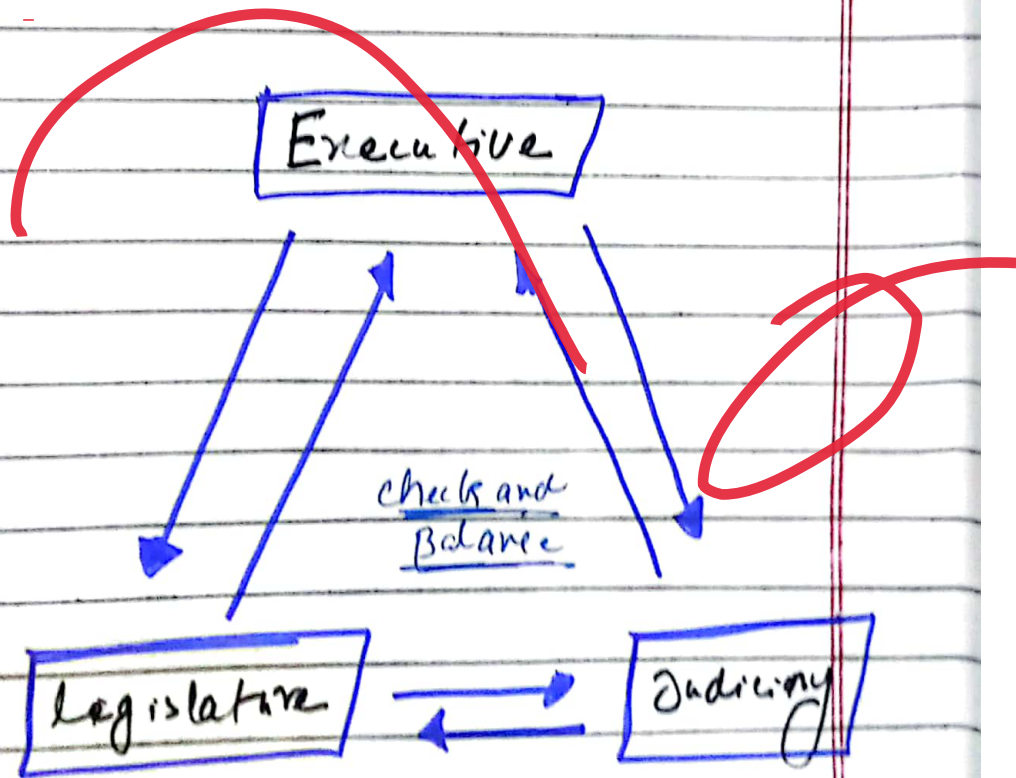 Executive
check and
Balance
legislature
Judiciary